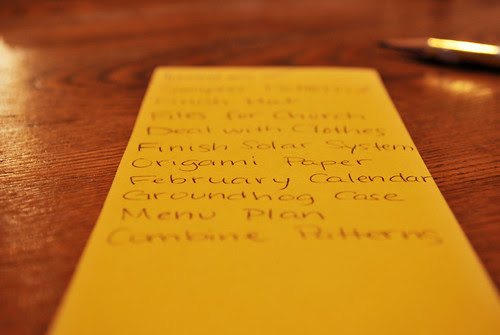 Finish Hat
Files for Church
Deal with Clothes
Finish Solar System
Origami Paper
February Calendar
Groundhog Case
Menu Plan
Combine Patterns